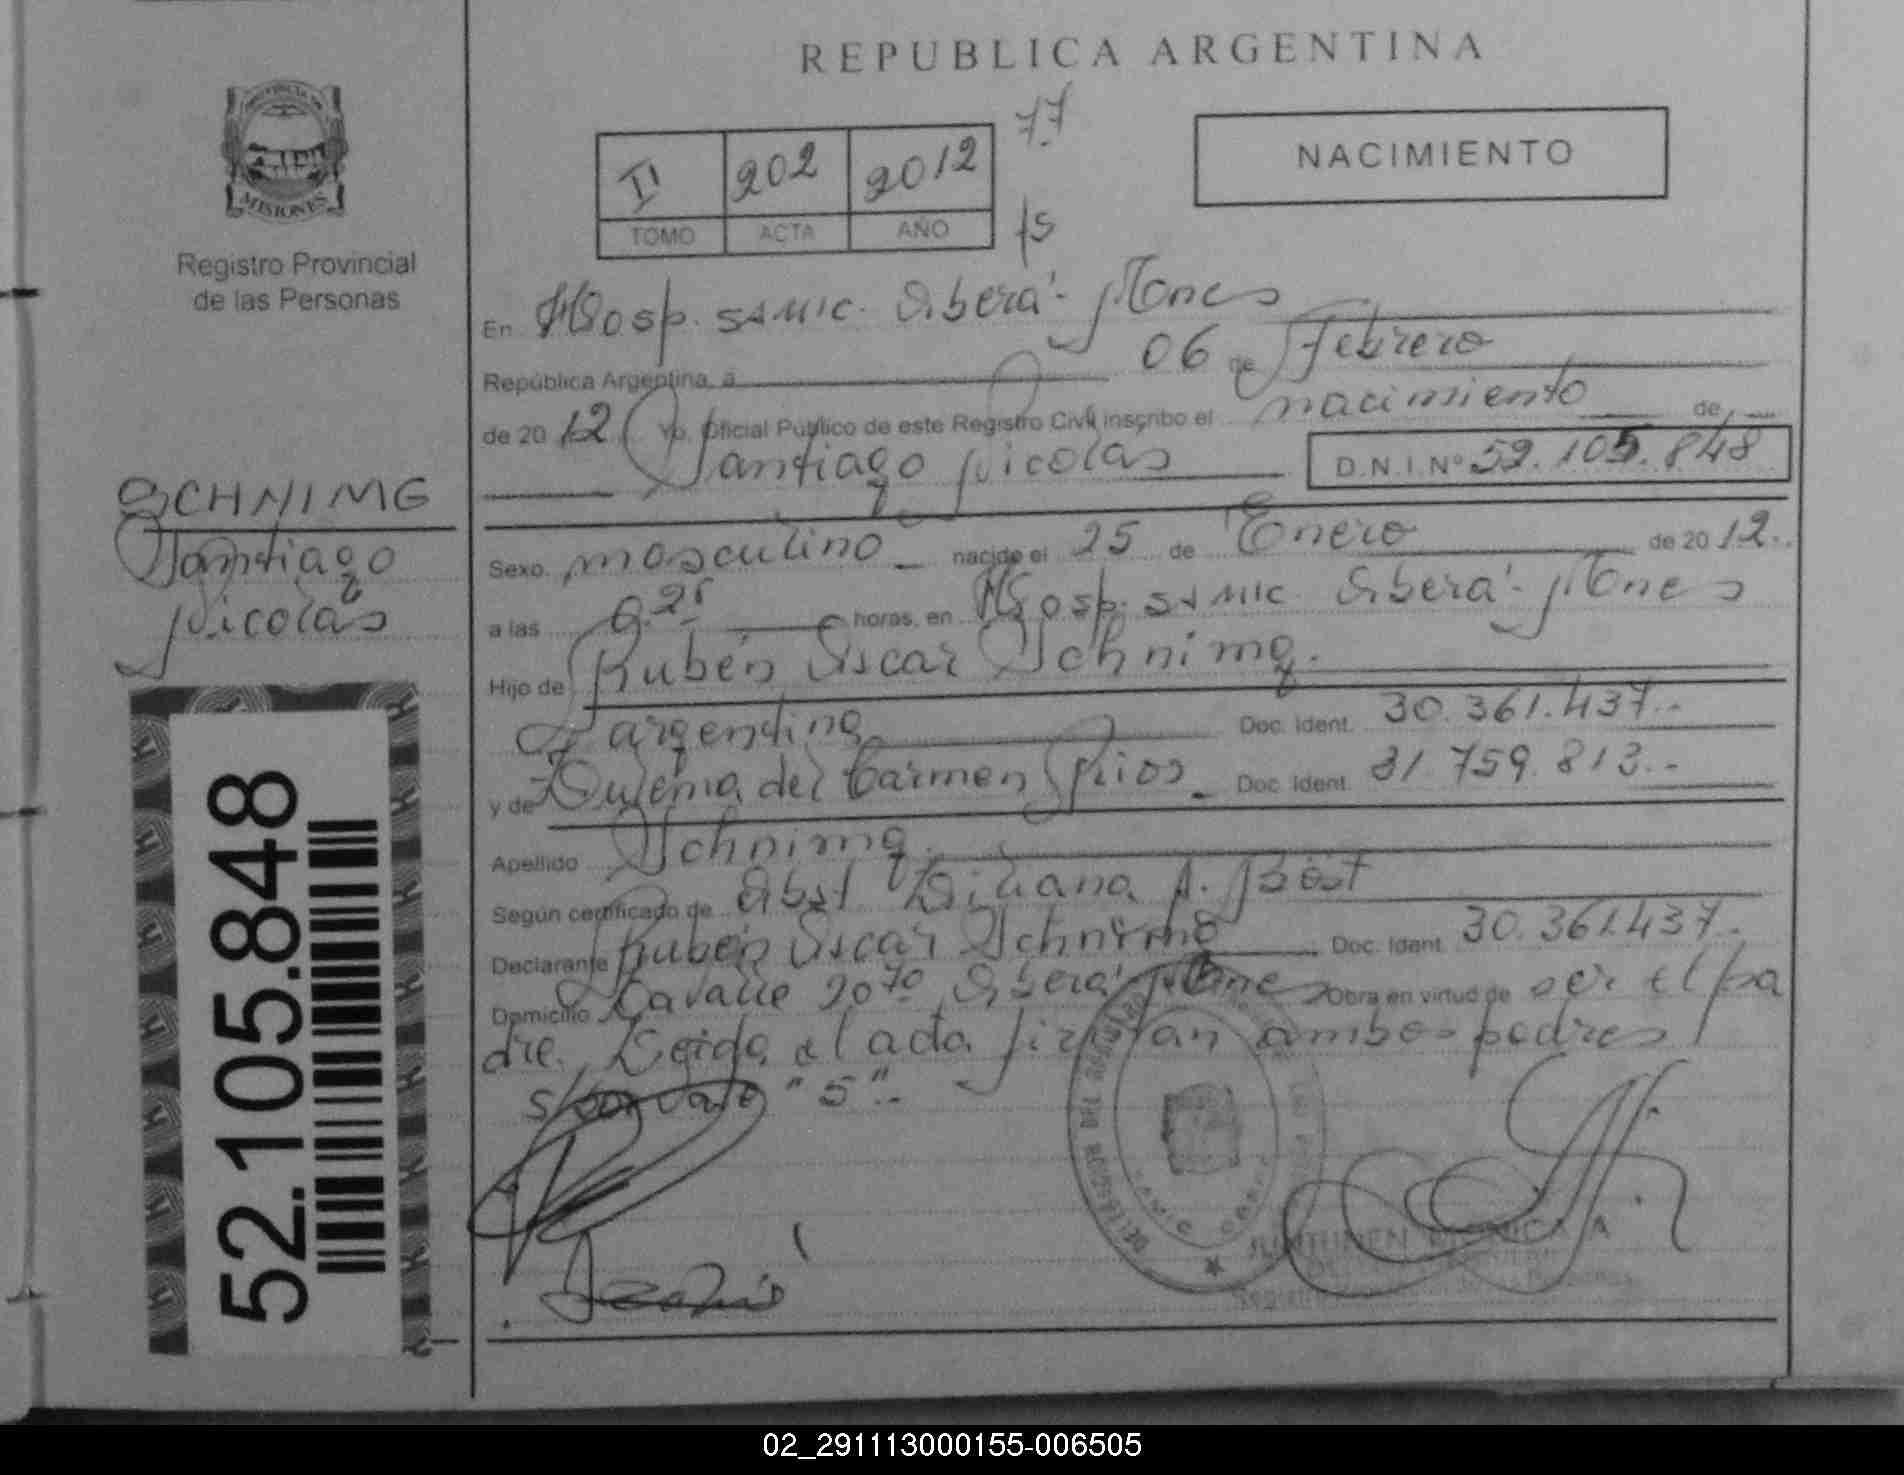 REPUBLICA ARGENTINA
PROVINCIA DE
MISIONES
Registro Provincial
de las Personas
77
I 202 2012
TOMO ACTA AÑO
15
NACIMIENTO
En Hosp. SAMIC. Oberá - Mones
República Argentina, a 06 de Febrero
de 2012 Yo, Oficial Público de este Registro Civil inscribo el nacimiento de
Santiago Nicolás D.N.I. Nº 52.105.848
SCHNIMG
Santiago
Nicolás
Sexo masculino nacido el 25 de Enero de 2012..
a las horas, en Hosp. SAMIC. Oberá - Mones
Hijo de Rubén Oscar Schnimg.
argentino Doc. Ident. 30.361.437.-
y de Zulema del Carmen Rios Doc. Ident. 31.759.813.-
Apellido Schnimg.
Según certificado de Obst Liliana A. Bost
Declarante Rubén Oscar Schnimg Doc. Ident. 30.361.437.-
Domicilio Lavalle 2070 Oberá Mones Obra en virtud de ser el pa
dre. Leída el acta firman ambos padres
"5".-
52.105.848
02_291113000155-006505